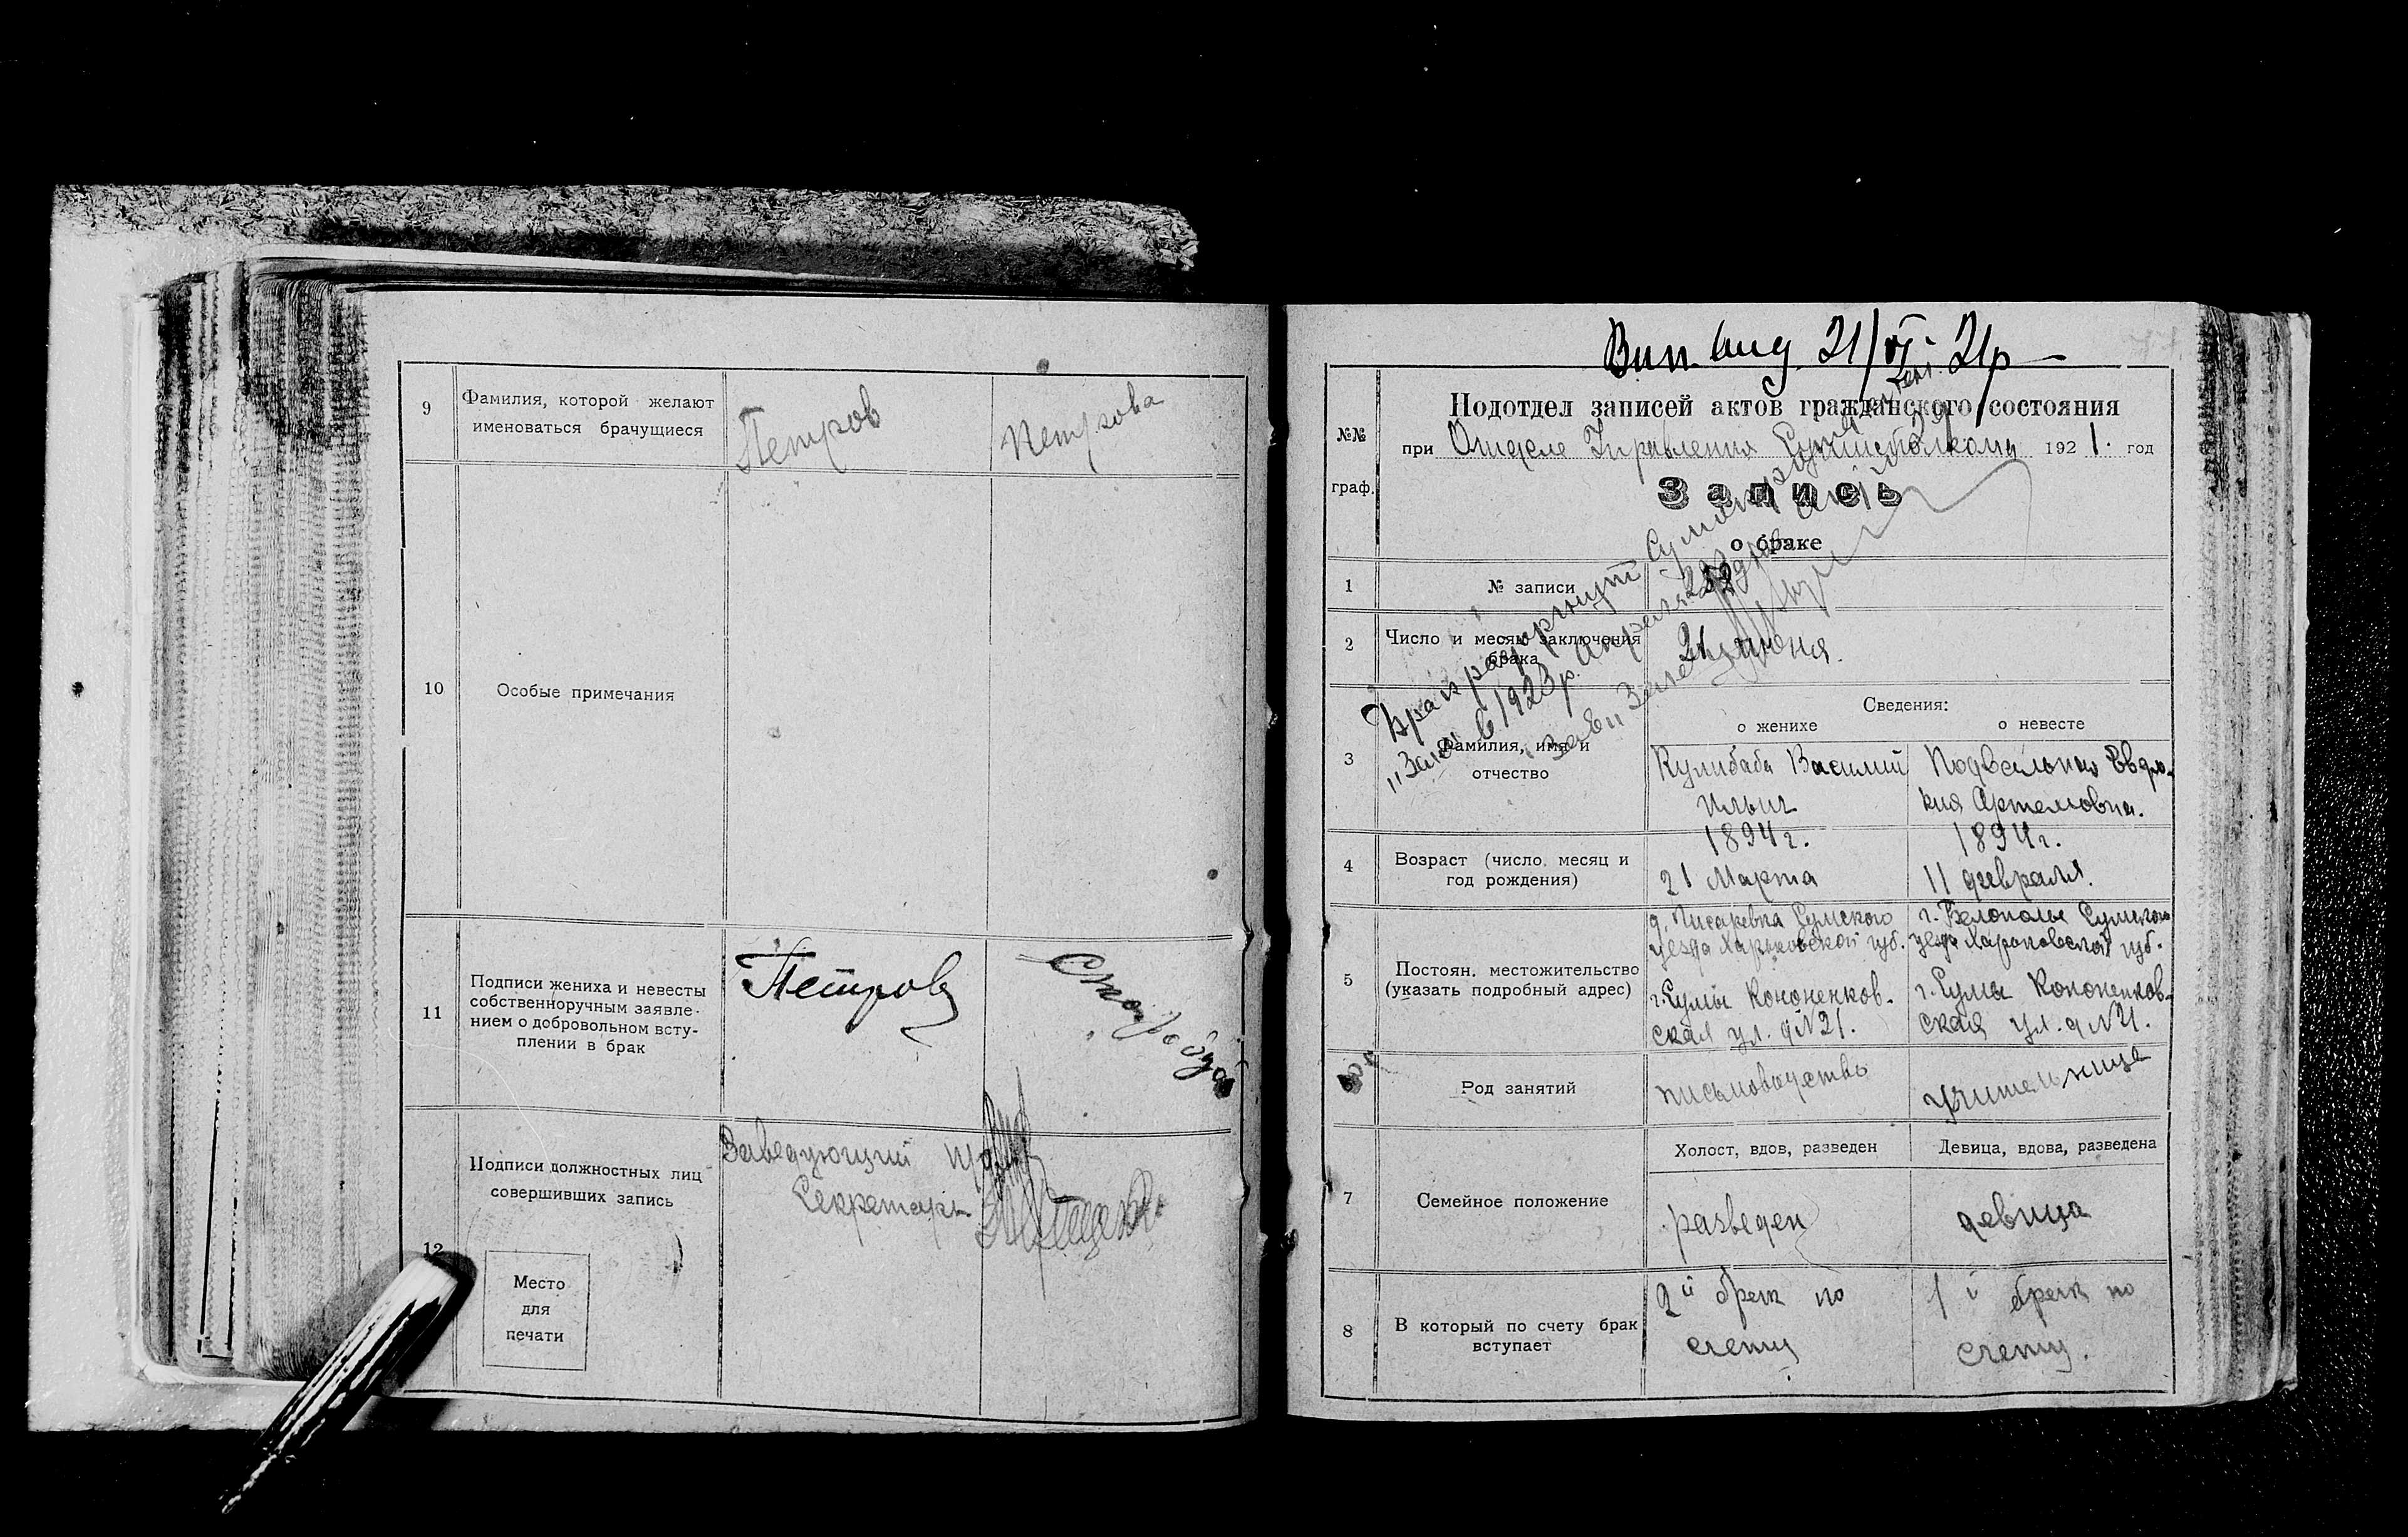 9
Фамилия, которой желают
именоваться брачущиеся
Петров
Петрова
10
Особые примечания
11
Подписи жениха и невесты
собственноручным заявле-
нием о добровольном всту-
плении в брак
Петров
12
Подписи должностных лиц
совершивших запись
Заведующий
Секретарь
Место
для
печати
21/VI 21р
№№
граф.
Подотдел записей актов гражданского состояния
при Отделе Управления 1921. год
Запись
о браке
1
№ записи
2
Число и месяц заключения
брака
21 июня.
Брак расторгнут
1923р. Апреля
3
Фамилия, имя и
отчество
Сведения:
о женихе
о невесте
Кулибаба Василий
Ильич
Подвальная Евдо-
кия Артемовна.
4
Возраст (число, месяц и
год рождения)
1894г.
21 Марта
1894г.
11 февраля.
5
Постоян. местожительство
(указать подробный адрес)
д. Писаревка Сумского
уезда Харьковской губ.
г. Сумы Кононенков-
ская ул. д №21.
г. Белополье Сумского
уезда Харьковской губ.
г. Сумы Кононенков-
ская ул. д №21.
Род занятий
письмоводство
учительница
7
Семейное положение
Холост, вдов, разведен
Девица, вдова, разведена
разведен
девица
8
В который по счету брак
вступает
2й брак по
счету
1й брак по
счету.